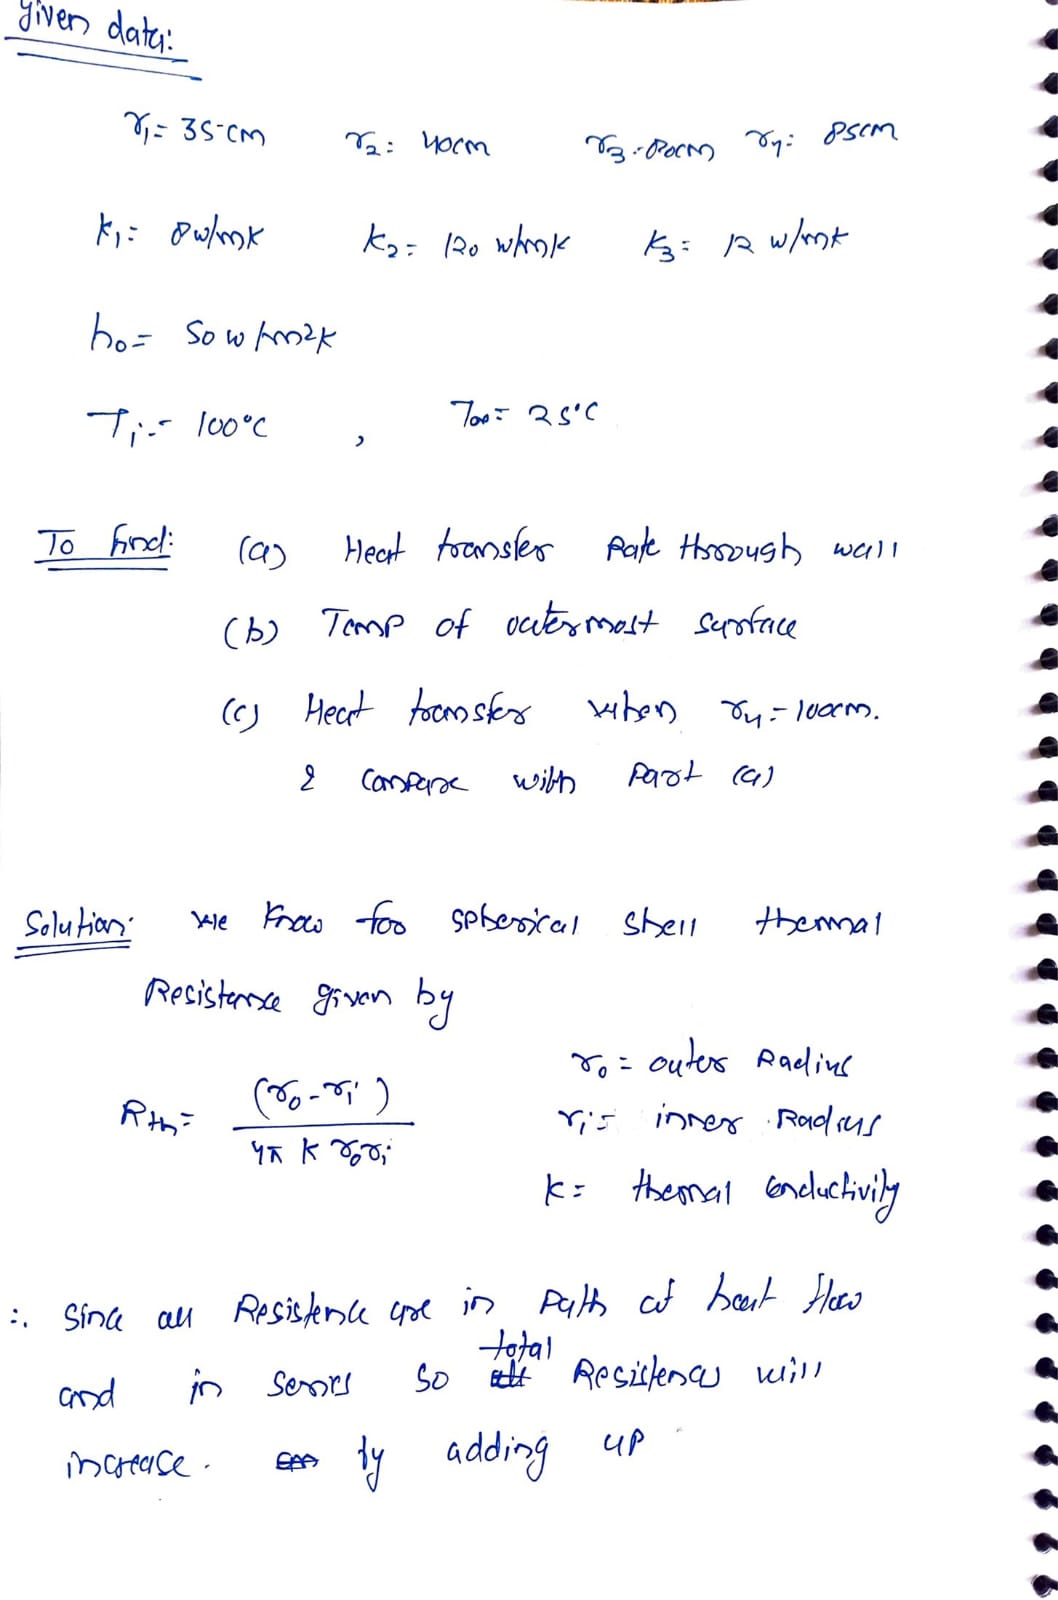 given data:
r₁= 35 cm r₂= 40cm r₃= 80cm r₄= 85cm
k₁= 8w/mk k₂= 120 w/mk k₃= 12 w/mk
h₀= 50 w/m2k
Tᵢ = 100°C , T∞= 25°C
To find: (a) Heat transfer Rate through wall
(b) Temp of outermost surface
(c) Heat transfer when r₄=100cm.
& compare with Part (a)
Solution: We know for spherical shell thermal
Resistance given by
Rth= (r₀-rᵢ) / 4π k r₀rᵢ
r₀= outer Radius
rᵢ= inner Radius
k= thermal conductivity
∴ Since all Resistence are in Path of heat flow
and in series so total Resistences will
increase. by adding up